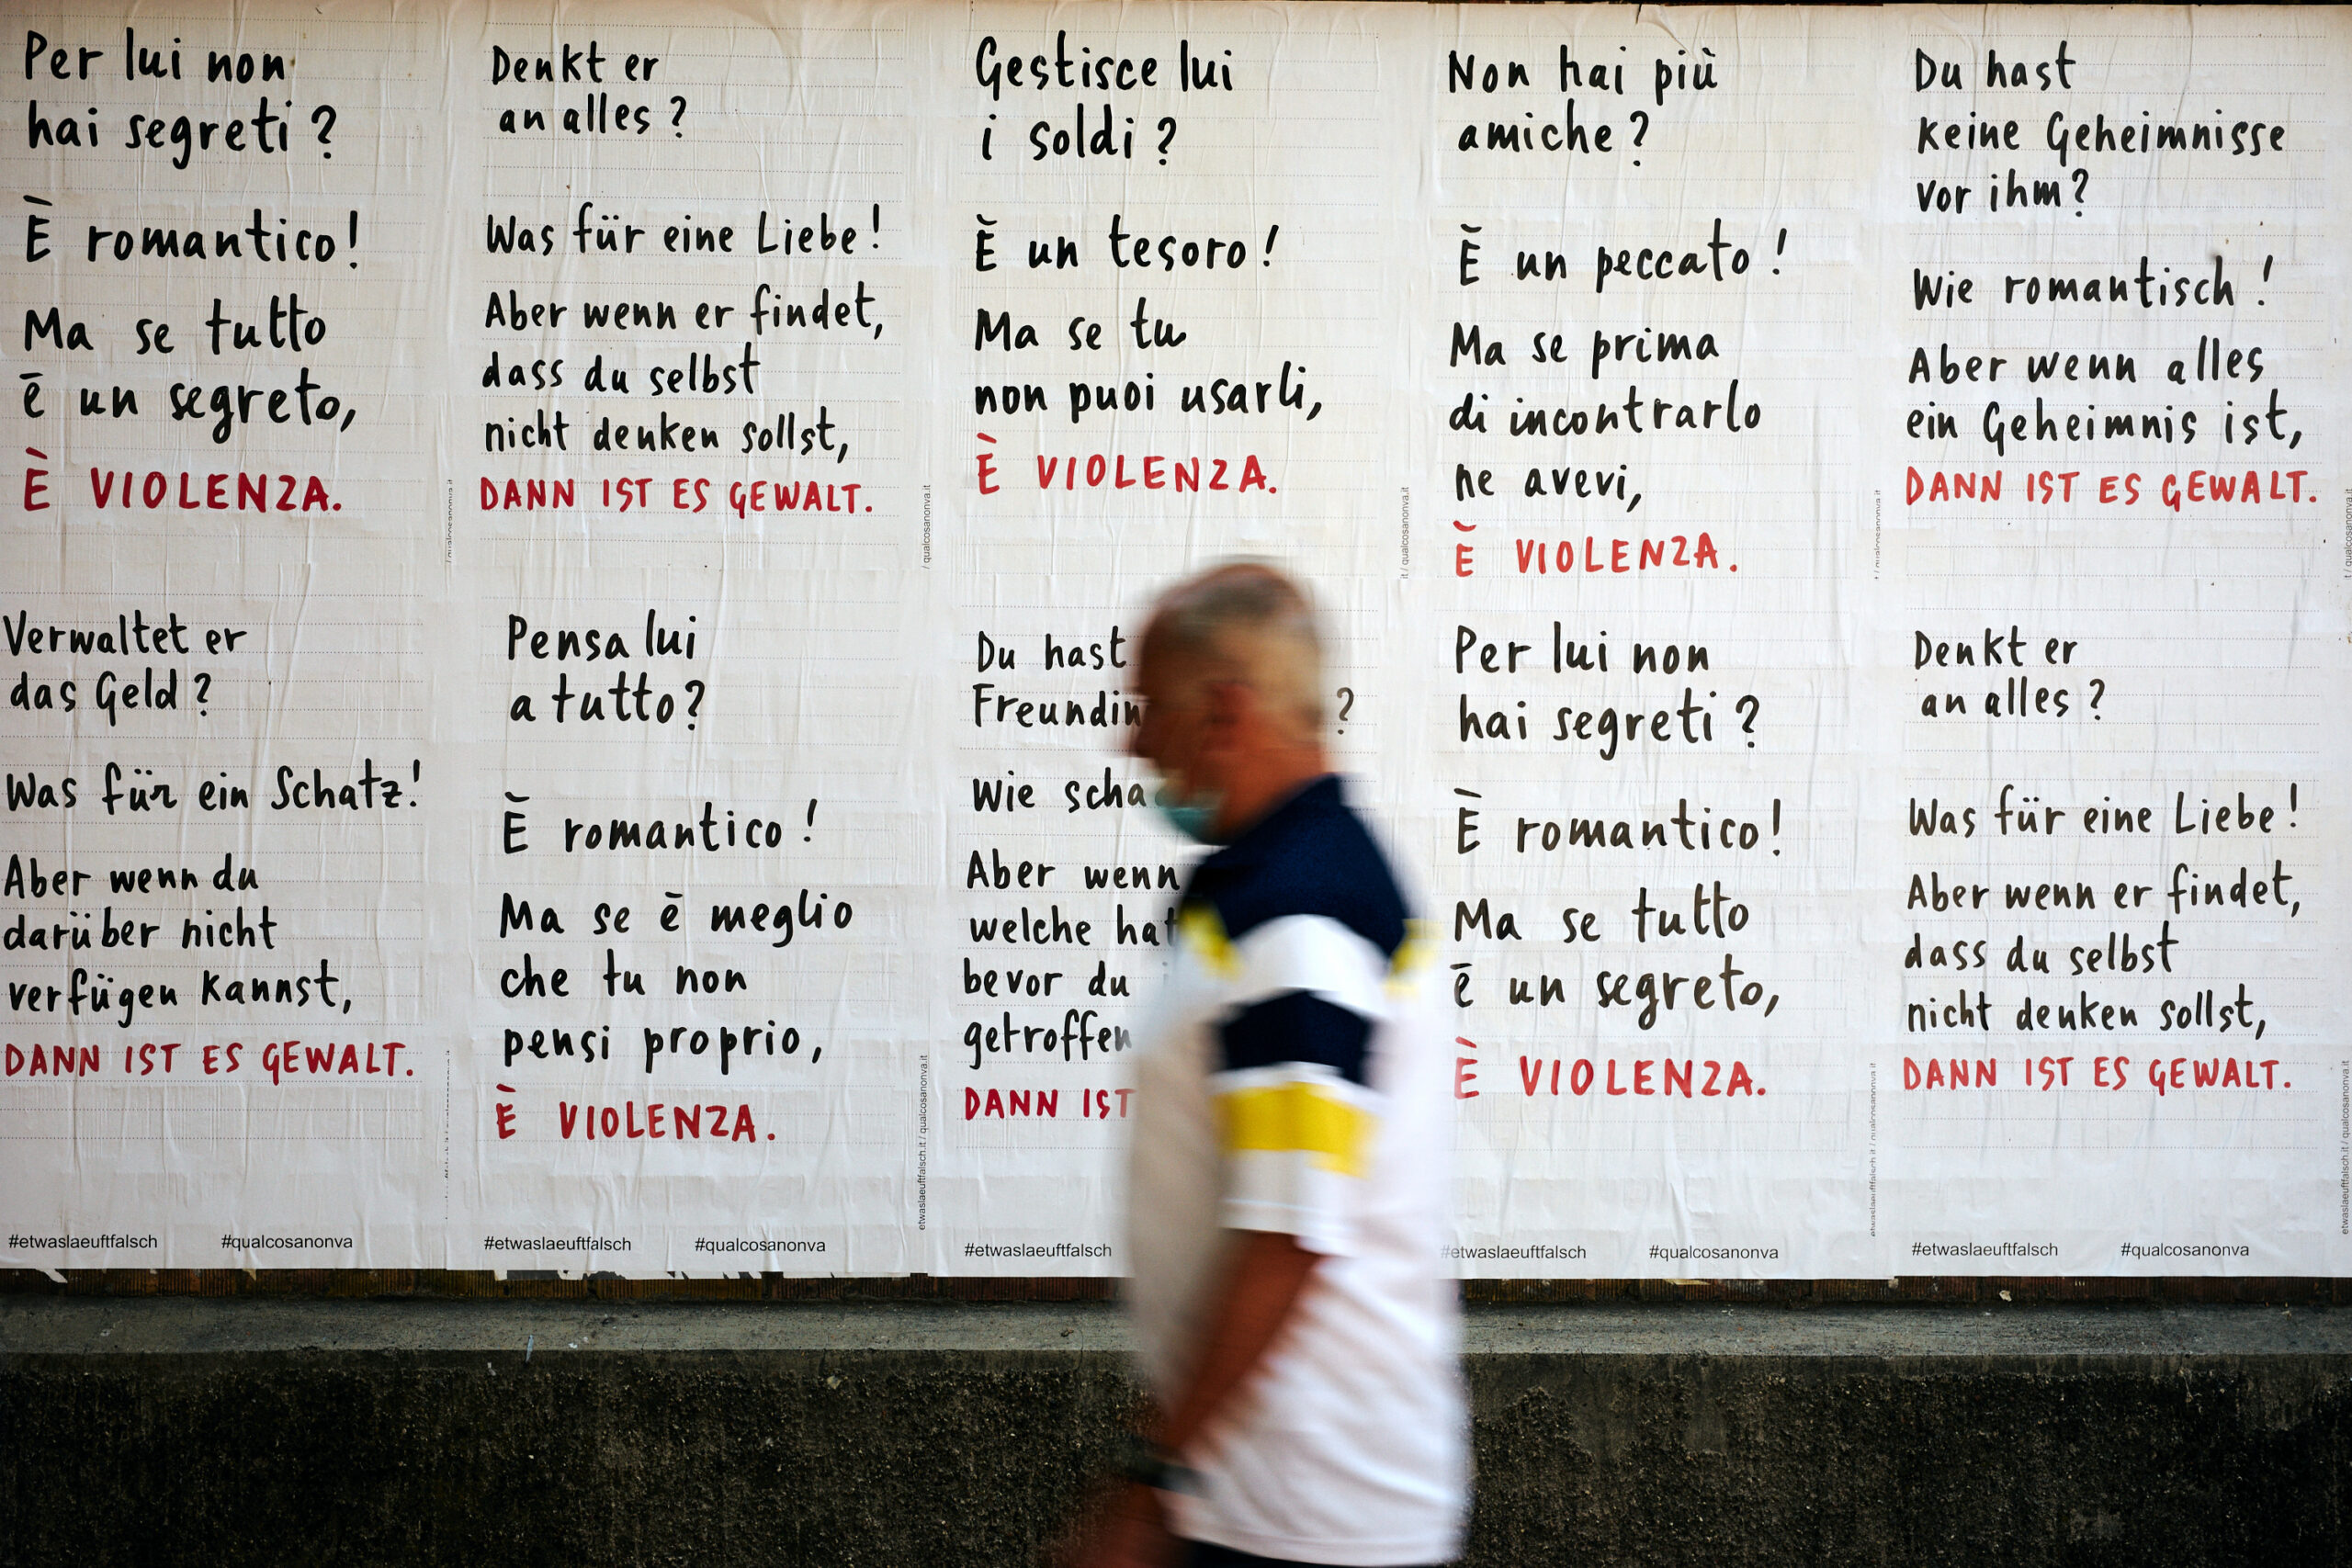 Per lui non
hai segreti?
È romantico!
Ma se tutto
è un segreto,
È VIOLENZA.
Denkt er
an alles?
Was für eine Liebe!
Aber wenn er findet,
dass du selbst
nicht denken sollst,
DANN IST ES GEWALT.
/ qualcosanonva.it
Gestisce lui
i soldi?
È un tesoro!
Ma se tu
non puoi usarli,
È VIOLENZA.
it / qualcosanonva.it
Non hai più
amiche?
È un peccato!
Ma se prima
di incontrarlo
ne avevi,
È VIOLENZA.
Du hast
keine Geheimnisse
vor ihm?
Wie romantisch!
Aber wenn alles
ein Geheimnis ist,
DANN IST ES GEWALT.
t / qualcosanonva.it
Verwaltet er
das Geld?
Was für ein Schatz!
Aber wenn du
darüber nicht
verfügen kannst,
DANN IST ES GEWALT.
#etwaslaeuftfalsch #qualcosanonva
Pensa lui
a tutto?
È romantico!
Ma se è meglio
che tu non
pensi proprio,
È VIOLENZA.
etwaslaeuftfalsch.it / qualcosanonva.it
#etwaslaeuftfalsch #qualcosanonva
Du hast
Freundin ?
Wie scha
Aber wenn
welche hat
bevor du
getroffen
DANN IST
#etwaslaeuftfalsch
Per lui non
hai segreti?
È romantico!
Ma se tutto
è un segreto,
È VIOLENZA.
etwaslaeuftfalsch.it / qualcosanonva.it
#etwaslaeuftfalsch #qualcosanonva
Denkt er
an alles?
Was für eine Liebe!
Aber wenn er findet,
dass du selbst
nicht denken sollst,
DANN IST ES GEWALT.
etwaslaeuftfalsch.it / qualcosanonva.it
#etwaslaeuftfalsch #qualcosanonva